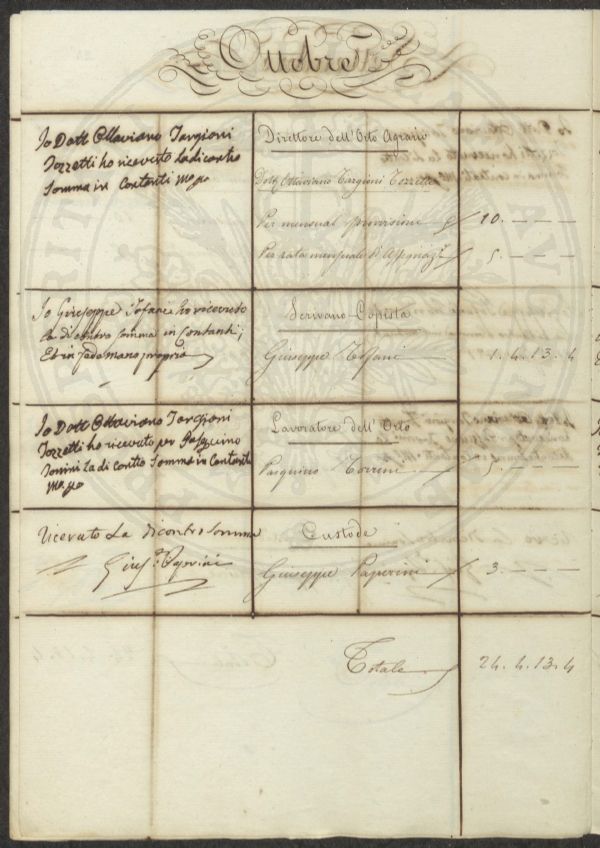 Ottobre
Io Dott Ottaviano Targioni
Tozzetti ho ricevuto la di contro
Somma in Contanti Mo po
Direttore dell'Orto Agrario
Dott. Ottaviano Targioni Tozzetti
Per mensual provvisione 10. — — —
Per rata mensuale d'Assegnaz. 5. — — —
Io Giuseppe Tofani ho ricevuto
la di contro somma in Contanti;
Et in fede mano propria
Scrivano-Copista
Giuseppe Tofani 1. 4. 13. 4
Io Dott Ottaviano Targioni
Tozzetti ho ricevuto per Pasquino
Torrini la di contro Somma in Contanti
Mo po
Lavoratore dell'Orto
Pasquino Torrini 5. — — —
Ricevuto La di contro somma
Gius.e Paperini
Custode
Giuseppe Paperini 3. — — —
Totale 24. 4. 13. 4